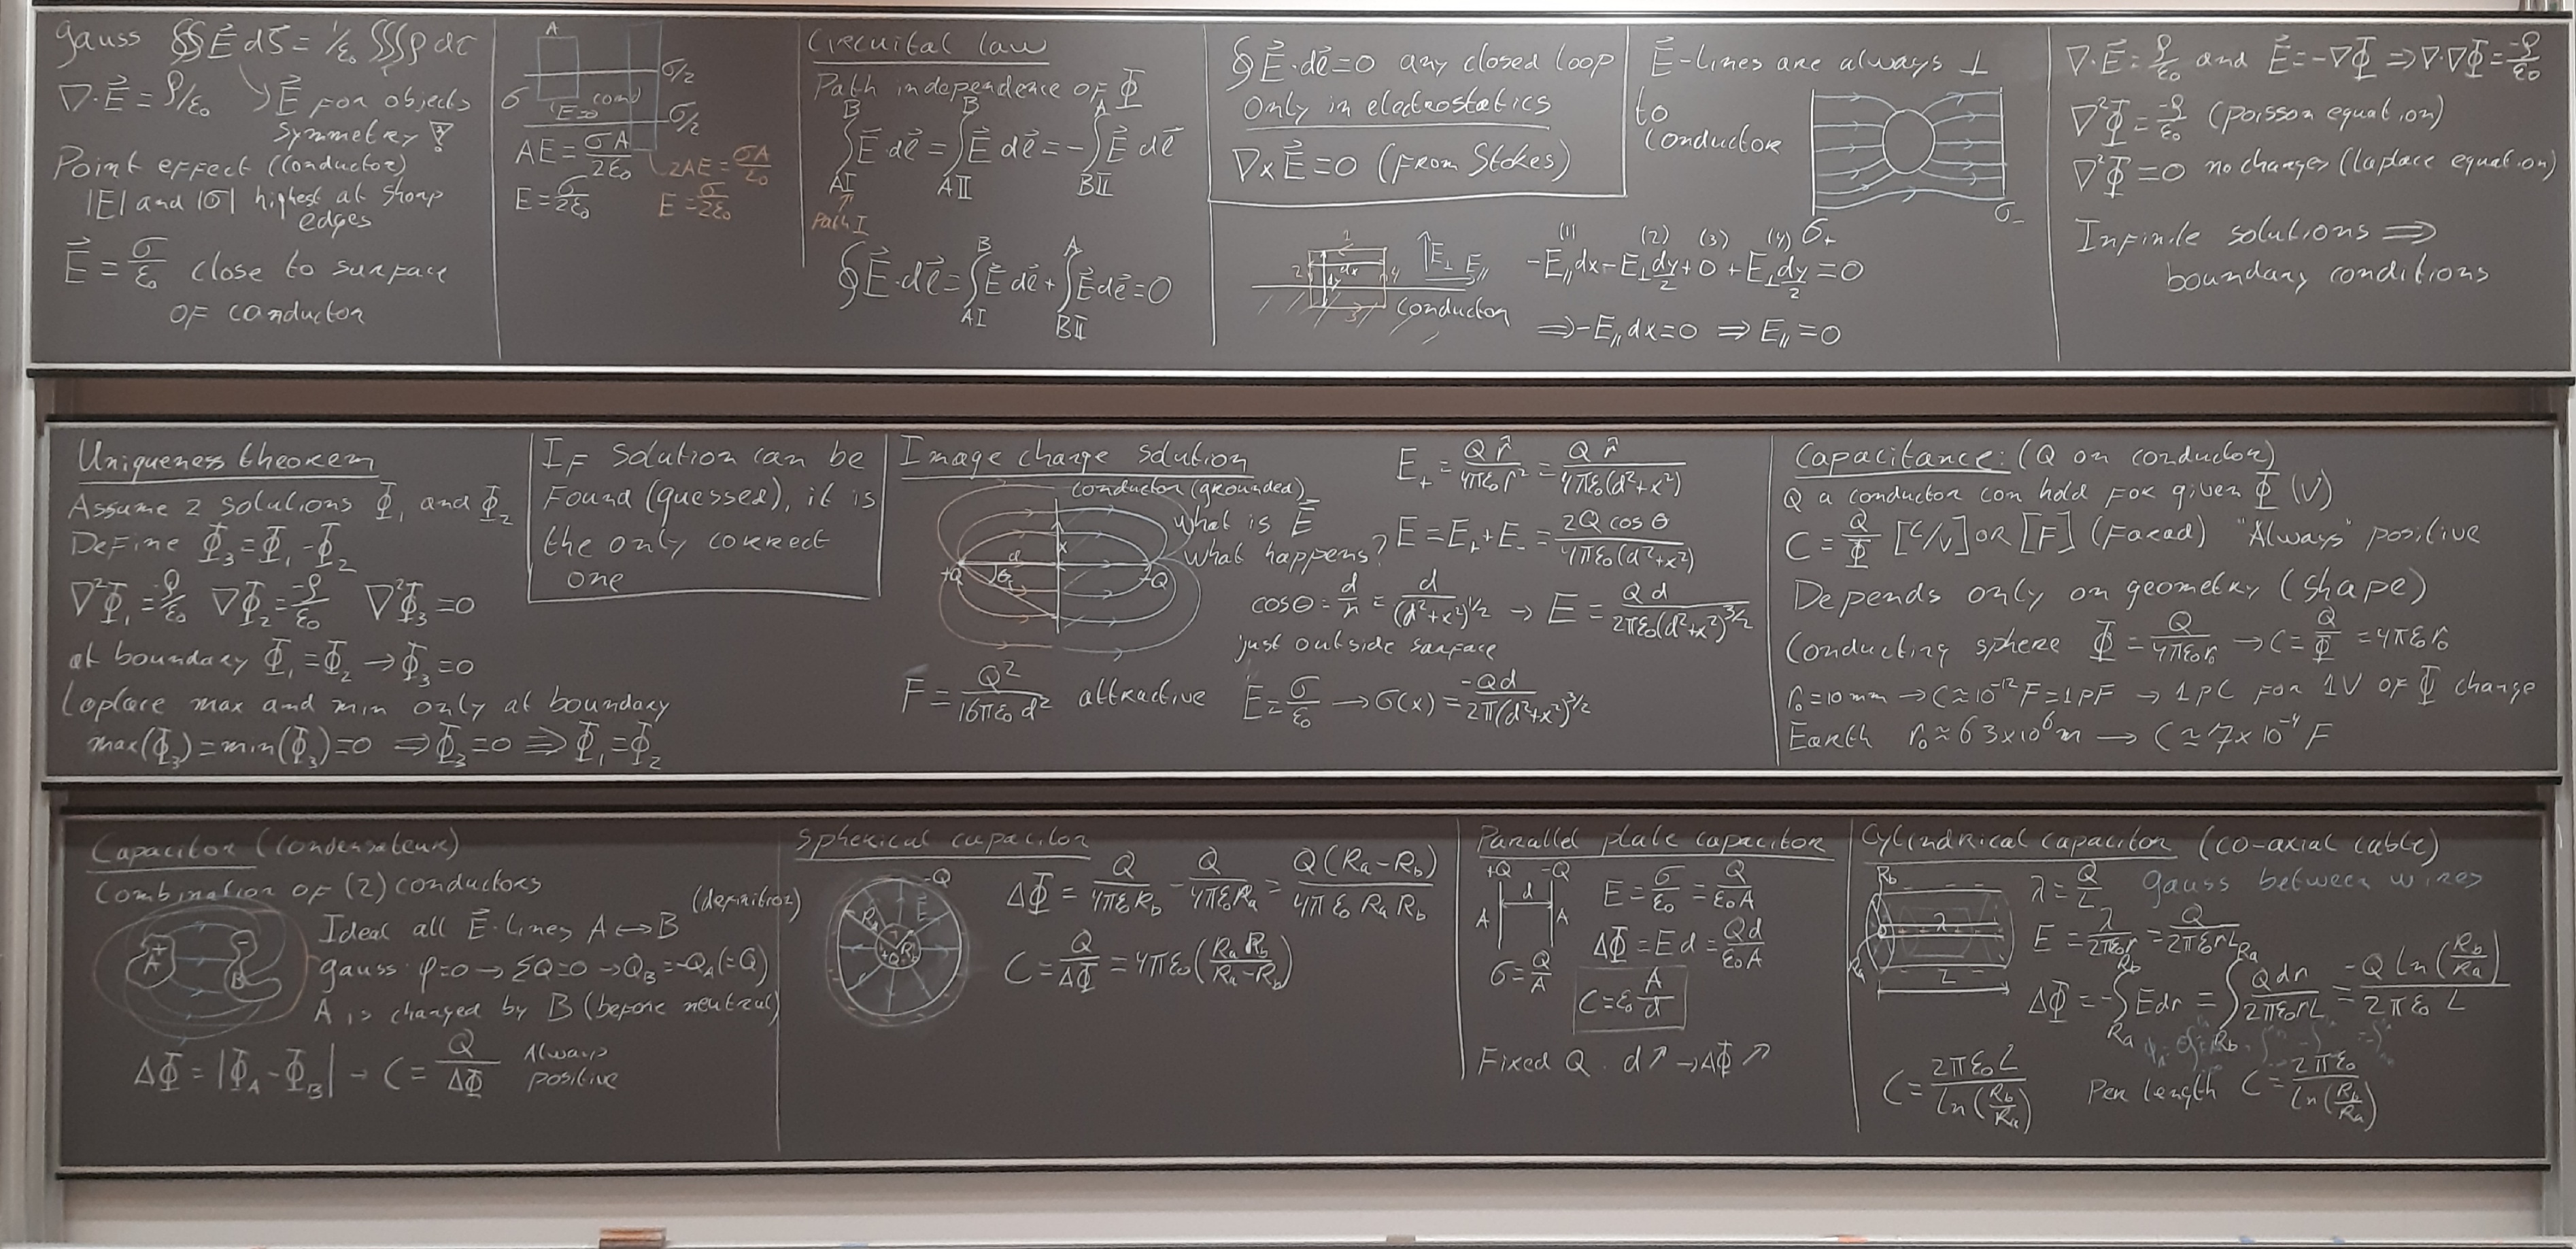 gauss ∯E⃗ dS⃗ = 1/ε₀ ∭ρ dτ
∇·E⃗ = ρ/ε₀
E⃗ for objects
symmetry
Point effect (conductor)
|E| and |σ| highest at sharp
edges
E⃗ = σ/ε₀ close to surface
of conductor
A
σ/2
σ
E=0 cond
σ/2
AE = σA/2ε₀
E = σ/2ε₀
2AE = σA/ε₀
E = σ/2ε₀
Circuital law
Path independence of Φ
∫_{AI}^{B} E⃗·dl⃗ = ∫_{AII}^{B} E⃗ dl⃗ = -∫_{BII}^{A} E⃗ dl⃗
Path I
∮E⃗·dl⃗ = ∫_{AI}^{B} E⃗ dl⃗ + ∫_{BII}^{A} E⃗ dl⃗ = 0
∮E⃗·dl⃗ = 0 any closed loop
Only in electrostatics
∇×E⃗ = 0 (From Stokes)
E⃗-Lines are always ⊥
to
conductor
σ₊
σ₋
1
2
dx
dy
4
3
E⊥
E∥
conductor
(1) (2) (3) (4)
-E∥dx - E⊥dy/2 + 0 + E⊥dy/2 = 0
⇒ -E∥dx = 0 ⇒ E∥ = 0
∇·E⃗ = ρ/ε₀ and E⃗ = -∇Φ ⇒ ∇·∇Φ = -ρ/ε₀
∇²Φ = -ρ/ε₀ (poisson equation)
∇²Φ = 0 no charges (laplace equation)
Infinite solutions ⇒
boundary conditions
Uniqueness theorem
Assume 2 solutions Φ₁ and Φ₂
Define Φ₃ = Φ₁ - Φ₂
∇²Φ₁ = -ρ/ε₀ ∇Φ₂ = -ρ/ε₀ ∇²Φ₃ = 0
at boundary Φ₁ = Φ₂ → Φ₃ = 0
Laplace max and min only at boundary
max(Φ₃) = min(Φ₃) = 0 ⇒ Φ₃ = 0 ⇒ Φ₁ = Φ₂
If solution can be
Found (guessed), it is
the only correct
one
Image charge solution
conductor (grounded)
what is E⃗
what happens?
+Q
d
θ
x
-Q
F = Q²/16πε₀d² attractive
E₊ = Q r̂/4πε₀r² = Q r̂/4πε₀(d²+x²)
E = E₊ + E₋ = 2Q cos θ/4πε₀(d²+x²)
cosθ = d/r = d/(d²+x²)^1/2 → E = Qd/2πε₀(d²+x²)^3/2
just outside surface
E = σ/ε₀ → σ(x) = -Qd/2π(d²+x²)^3/2
Capacitance: (Q on conductor)
Q a conductor can hold for given Φ (V)
C = Q/Φ [C/V] or [F] (Farad) "Always" positive
Depends only on geometry (shape)
Conducting sphere Φ = Q/4πε₀r₀ → C = Q/Φ = 4πε₀r₀
r₀ = 10 mm → C ≈ 10⁻¹² F = 1 pF → 1 pC for 1V of Φ change
Earth r₀ ≈ 6.3×10⁶ m → C ≃ 7×10⁻⁴ F
Capacitor (Condensateur)
Combination of (2) conductors
(definition)
A
+
B
-
Ideal all E⃗-Lines A ↔ B
gauss: φ=0 → ΣQ=0 → Q_B = -Q_A (=Q)
A is charged by B (before neutral)
ΔΦ = |Φ_A - Φ_B| → C = Q/ΔΦ Always
positive
Spherical capacitor
-Q
Ra
E⃗
+Q
Rb
ΔΦ = Q/4πε₀R_b - Q/4πε₀R_a = Q(R_a - R_b)/4πε₀R_aR_b
C = Q/ΔΦ = 4πε₀(R_aR_b/(R_a - R_b))
Parallel plate capacitor
+Q -Q
d
A A
σ = Q/A
E = σ/ε₀ = Q/ε₀A
ΔΦ = Ed = Qd/ε₀A
C = ε₀ A/d
Fixed Q. d↗ → ΔΦ↗
Cylindrical capacitor (co-axial cable)
Rb
λ
Ra
L
λ = Q/L gauss between wires
E = λ/2πε₀r = Q/2πε₀rL
ΔΦ = -∫_{Ra}^{Rb} E dr = ∫_{Rb}^{Ra} Q dr/2πε₀rL = -Q ln(R_b/R_a)/2πε₀L
C = 2πε₀L/ln(R_b/R_a) Per length C = 2πε₀/ln(R_b/R_a)